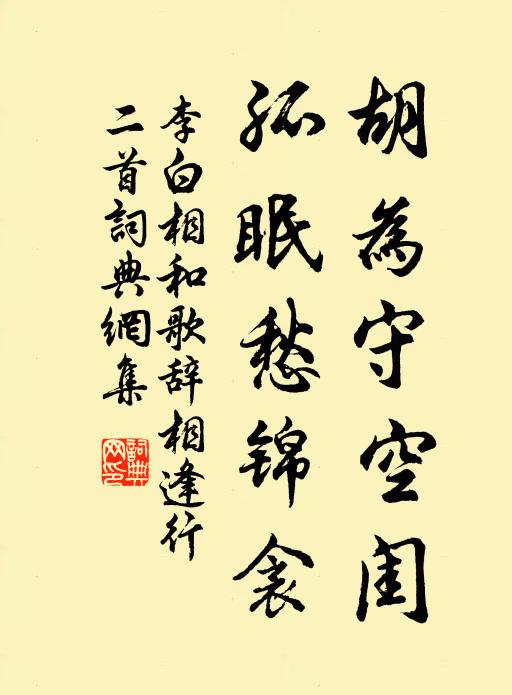 胡為守空闺
孤眠愁锦衾
李白相和歌辞相逢行
二首詞典網集
詞典網印